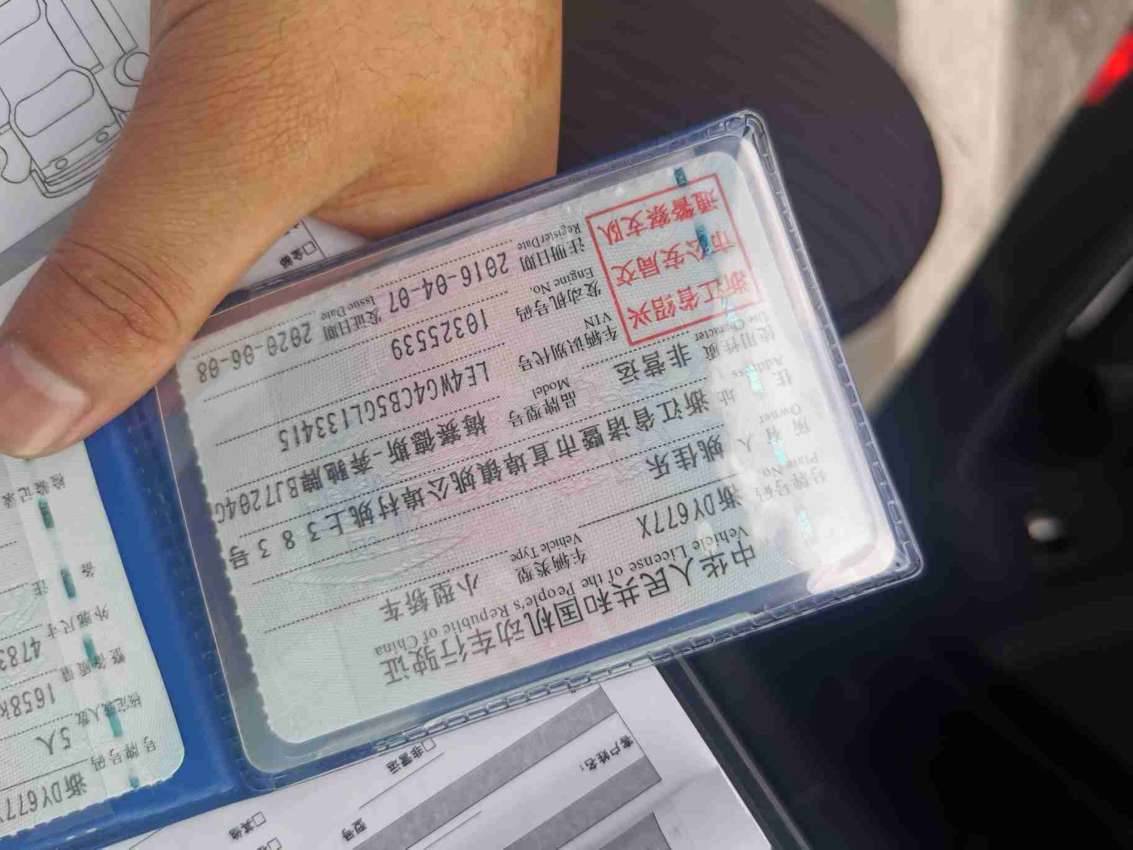 中华人民共和国机动车行驶证
Vehicle License of the People's Republic of China
号牌号码 浙DY677X 车辆类型 小型轿车
Plate No. Vehicle Type
所有人 姚佳乐
Owner
住址 浙江省诸暨市直埠镇姚公埠村姚上383号
Address
使用性质 非营运 品牌型号 梅赛德斯-奔驰牌BJ7204G
Use Character Model
浙江省绍兴
市公安局交
通警察支队
车辆识别代号 LE4WG4CB5GL133415
VIN
发动机号码 10325539
Engine No.
注册日期 2016-04-07 发证日期 2020-06-08
Register Date Issue Date
号牌号码 浙DY677X
核定载人数 5人
整备质量 1658k
外廓尺寸 4783
备注
检验记录
客户姓名:
型号
□非营运
□其他
□全部